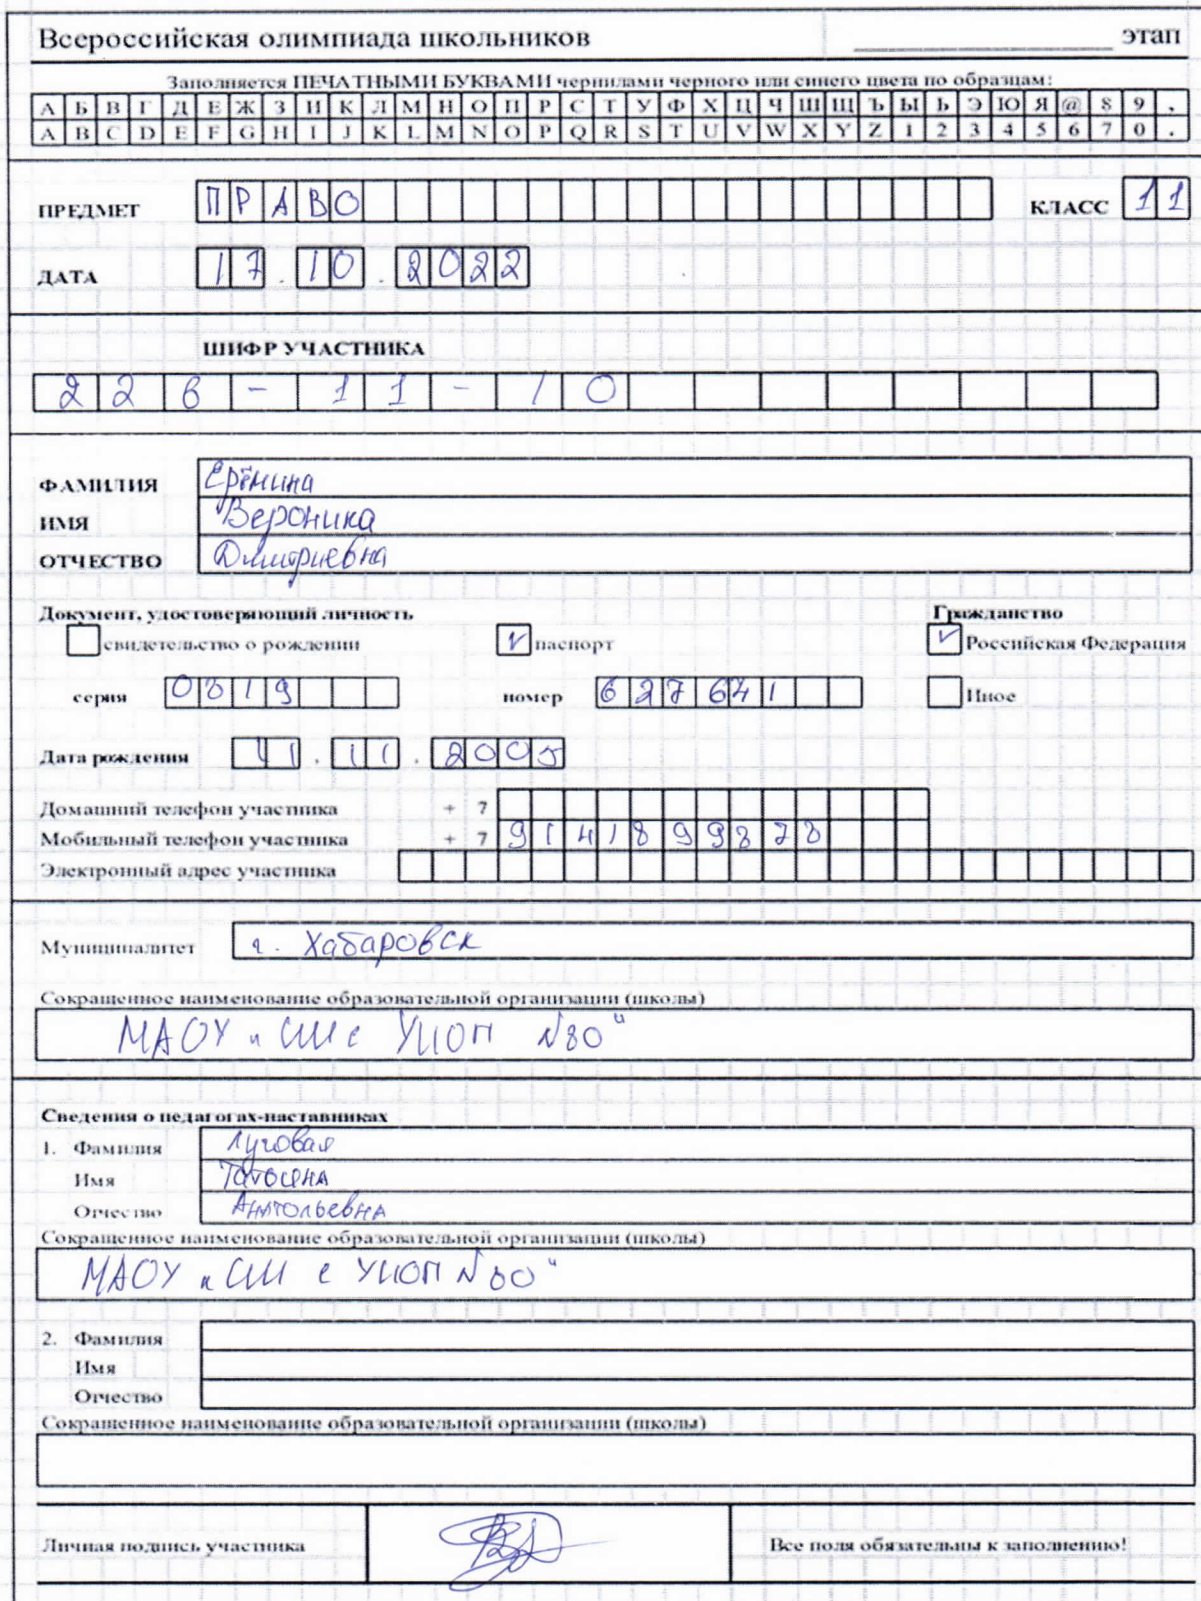 Всероссийская олимпиада школьников ____________ этап
Заполняется ПЕЧАТНЫМИ БУКВАМИ чернилами черного или синего цвета по образцам:
А Б В Г Д Е Ж З И К Л М Н О П Р С Т У Ф Х Ц Ч Ш Щ Ъ Ы Ь Э Ю Я @ 8 9 ,
A B C D E F G H I J K L M N O P Q R S T U V W X Y Z 1 2 3 4 5 6 7 0 .
ПРЕДМЕТ ПРАВО КЛАСС 11
ДАТА 17.10.2022
ШИФР УЧАСТНИКА
226-11-10
ФАМИЛИЯ Ерёмина
ИМЯ Вероника
ОТЧЕСТВО Дмитриевна
Документ, удостоверяющий личность Гражданство
свидетельство о рождении паспорт Российская Федерация
серия 0819 номер 627641 Иное
Дата рождения 11.2005
Домашний телефон участника + 7
Мобильный телефон участника + 7
Электронный адрес участника
Муниципалитет г. Хабаровск
Сокращенное наименование образовательной организации (школы)
МАОУ "СШ с УИОП №80"
Сведения о педагогах-наставниках
1. Фамилия Луговая
Имя Татьяна
Отчество Анатольевна
Сокращенное наименование образовательной организации (школы)
МАОУ "СШ с УИОП №80"
2. Фамилия
Имя
Отчество
Сокращенное наименование образовательной организации (школы)
Личная подпись участника Все поля обязательны к заполнению!